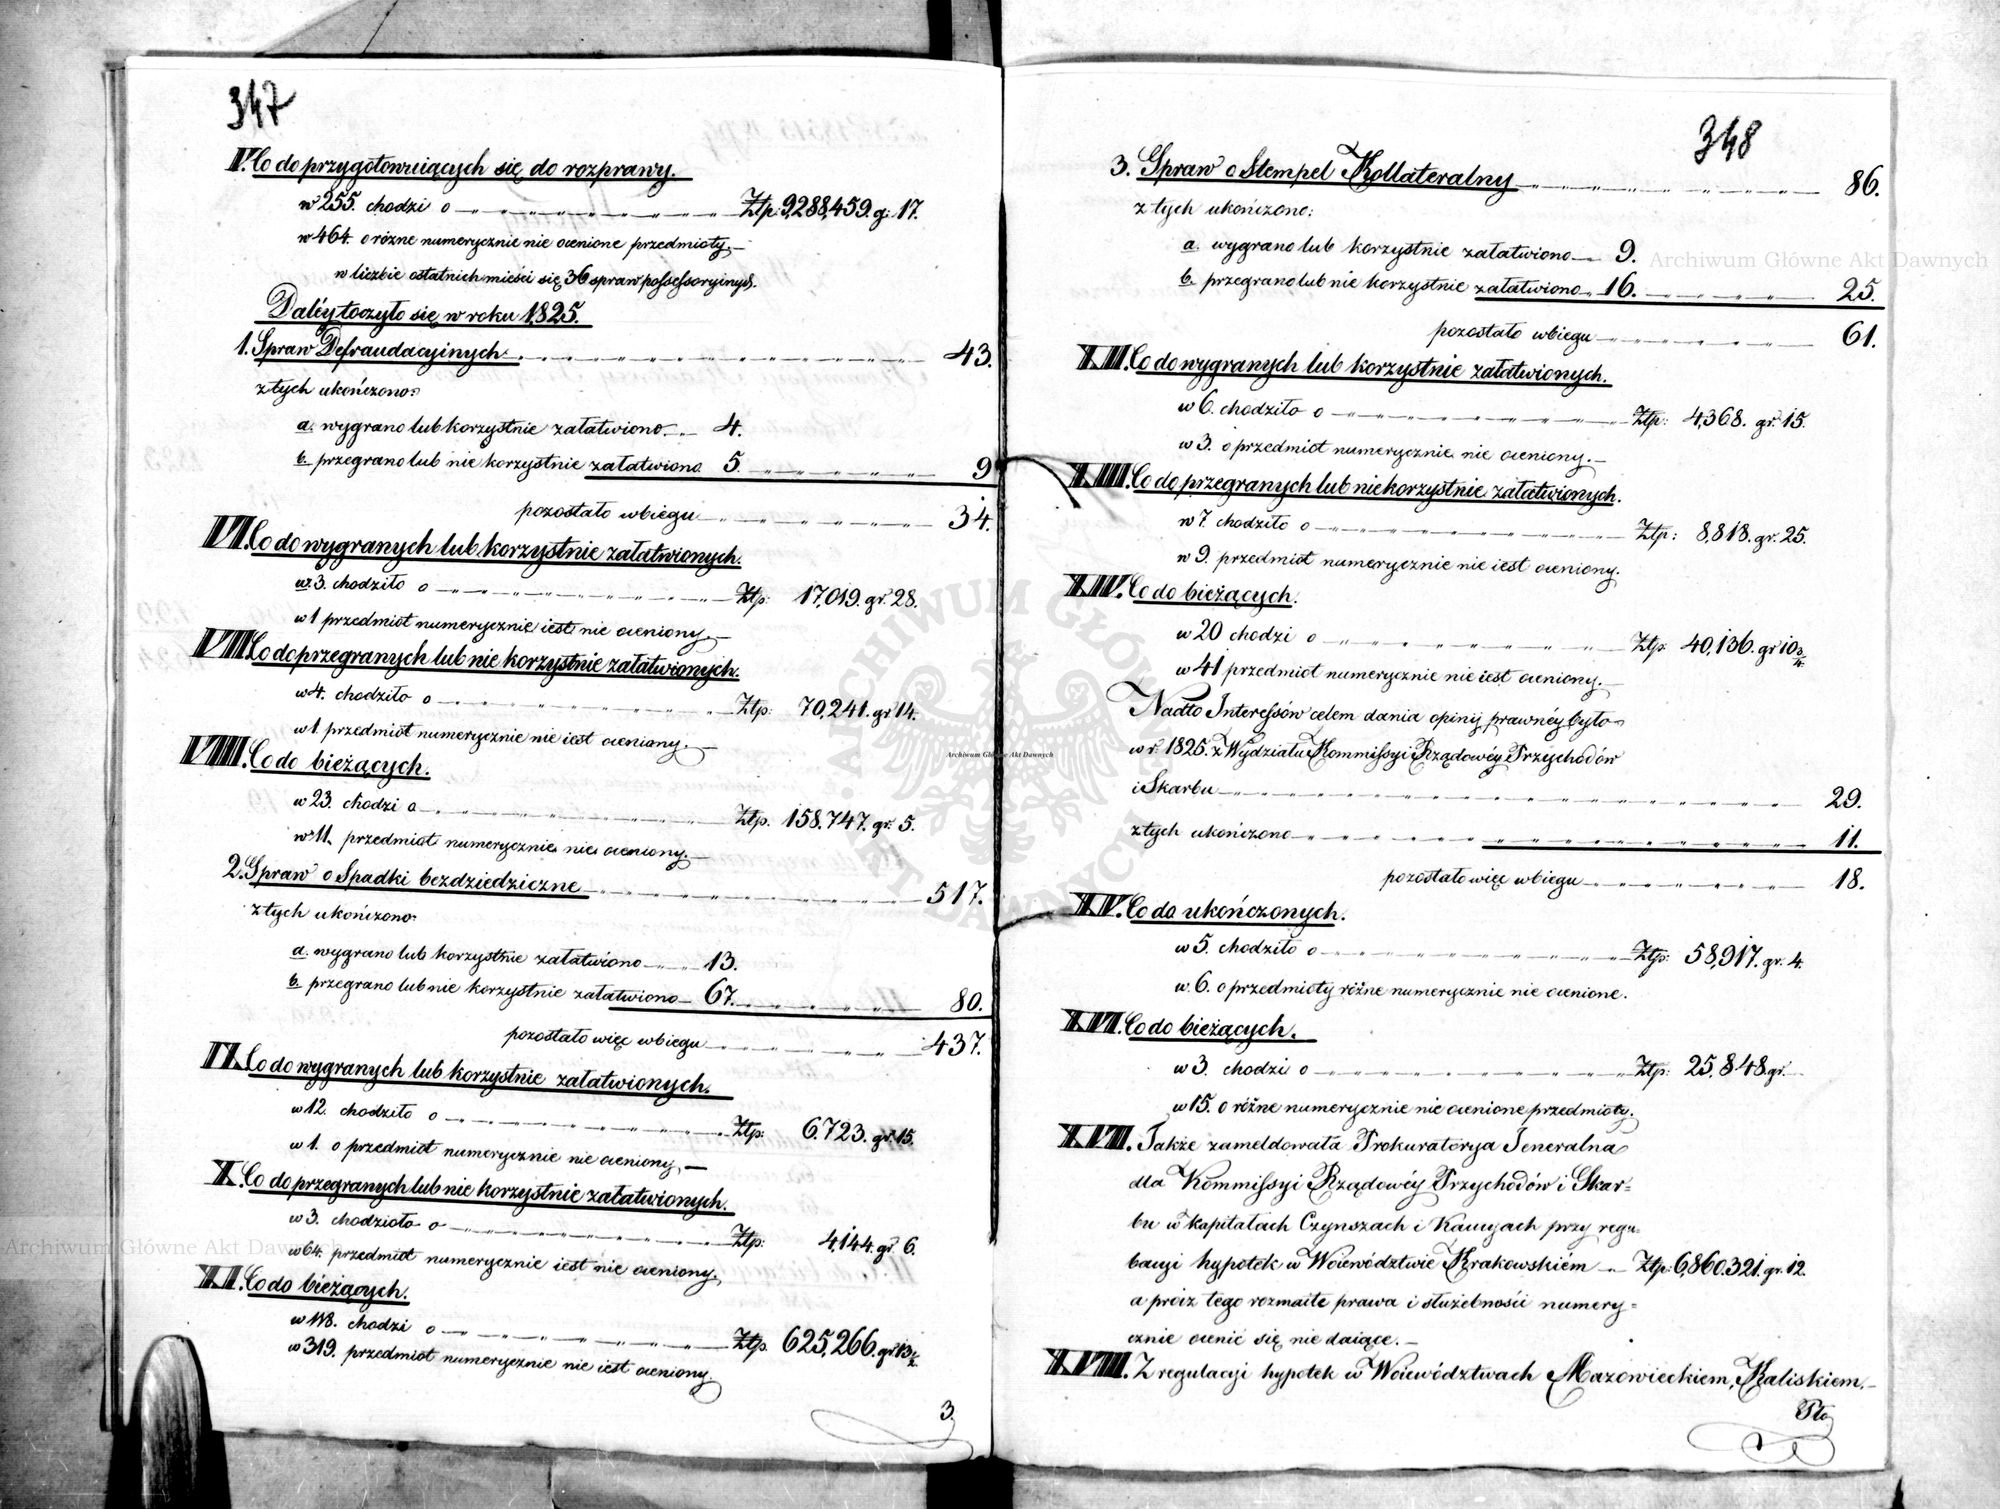 347
V. Co do przygotowuiących się do rozprawy.
w 255. chodzi o Złp: 9,288,459. g: 17.
w 464. o różne numerycznie nie ocenione przedmioty.
w liczbie ostatnich mieści się 36 spraw possessoryinych.
Daléy toczyło się w roku 1825.
1. Spraw Defraudacyinych 43.
z tych ukończono:
a. wygrano lub korzystnie załatwiono 4.
b. przegrano lub nie korzystnie załatwiono 5. 9
pozostało w biegu 34.
VI. Co do wygranych lub korzystnie załatwionych.
w 3. chodziło o Złp: 17,019. gr. 28.
w 1 przedmiot numerycznie iest nie oceniony.
VII. Co do przegranych lub nie korzystnie załatwionych.
w 4. chodziło o Złp: 70,241. gr 14.
w 1. przedmiot numerycznie nie iest oceniony.
VIII. Co do bieżących.
w 23. chodzi o Złp. 158.747. gr. 5.
w 11. przedmiot numerycznie nie oceniony.
2. Spraw o Spadki bezdziedziczne 517.
z tych ukończono:
a. wygrano lub korzystnie załatwiono 13.
b. przegrano lub nie korzystnie załatwiono 67. 80.
pozostało więc w biegu 437.
IX. Co do wygranych lub korzystnie załatwionych.
w 12. chodziło o Złp: 6.723. gr. 15.
w 1. o przedmiot numerycznie nie oceniony.
X. Co do przegranych lub nie korzystnie załatwionych.
w 3. chodzioło o Złp: 4,144. gr. 6.
w 64. przedmiot numerycznie iest nie oceniony.
XI. Co do bieżących.
w 118. chodzi o Złp. 625,266. gr 13½
w 319. przedmiot numerycznie nie iest oceniony.
3
348
3. Spraw o Stempel Kollateralny 86.
z tych ukończono:
a. wygrano lub korzystnie załatwiono 9.
b. przegrano lub nie korzystnie załatwiono 16. 25.
pozostało w biegu 61.
XII. Co do wygranych lub korzystnie załatwionych.
w 6. chodziło o Złp: 4,368. gr. 15.
w 3. o przedmiot numerycznie nie oceniony.
XIII. Co do przegranych lub niekorzystnie załatwionych.
w 7. chodziło o Złp: 8,818. gr. 25.
w 9. przedmiot numerycznie nie iest oceniony.
XIV. Co do bieżących.
w 20 chodzi o Złp: 40,136. gr 10 3/4.
w 41 przedmiot numerycznie nie iest oceniony.
Nadto Interessów celem dania opinij prawnéy było
w r. 1825. z Wydziału Kommissyi Rządowéy Przychodów
i Skarbu 29.
z tych ukończono 11.
pozostało więc w biegu 18.
XV. Co do ukończonych.
w 5. chodziło o Złp: 58,917. gr. 4.
w 6. o przedmioty różne numerycznie nie ocenione.
XVI. Co do bieżących.
w 3. chodzi o Złp: 25,848. gr.
w 15. o różne numerycznie nie ocenione przedmioty.
XVII. Także zameldowała Prokuratorya Jeneralna
dla Kommissyi Rządowéy Przychodów i Skar=
bu w kapitałach Czynszach i Kaucyach przy regu=
lacyi hypotek w Woiewództwie Krakowskiém Złp: 6,860.321. gr. 12.
a prócz tego rozmaite prawa i służebności numery=
cznie ocenić się nie daiące.
XVIII. Z regulacyi hypotek w Woiewództwach Mazowieckiem, Kaliskiem,
Pło
Archiwum Główne Akt Dawnych
Archiwum Główne Akt Dawnych
Archiwum Główne Akt Dawnych
ARCHIWUM GŁÓWNE AKT DAWNYCH